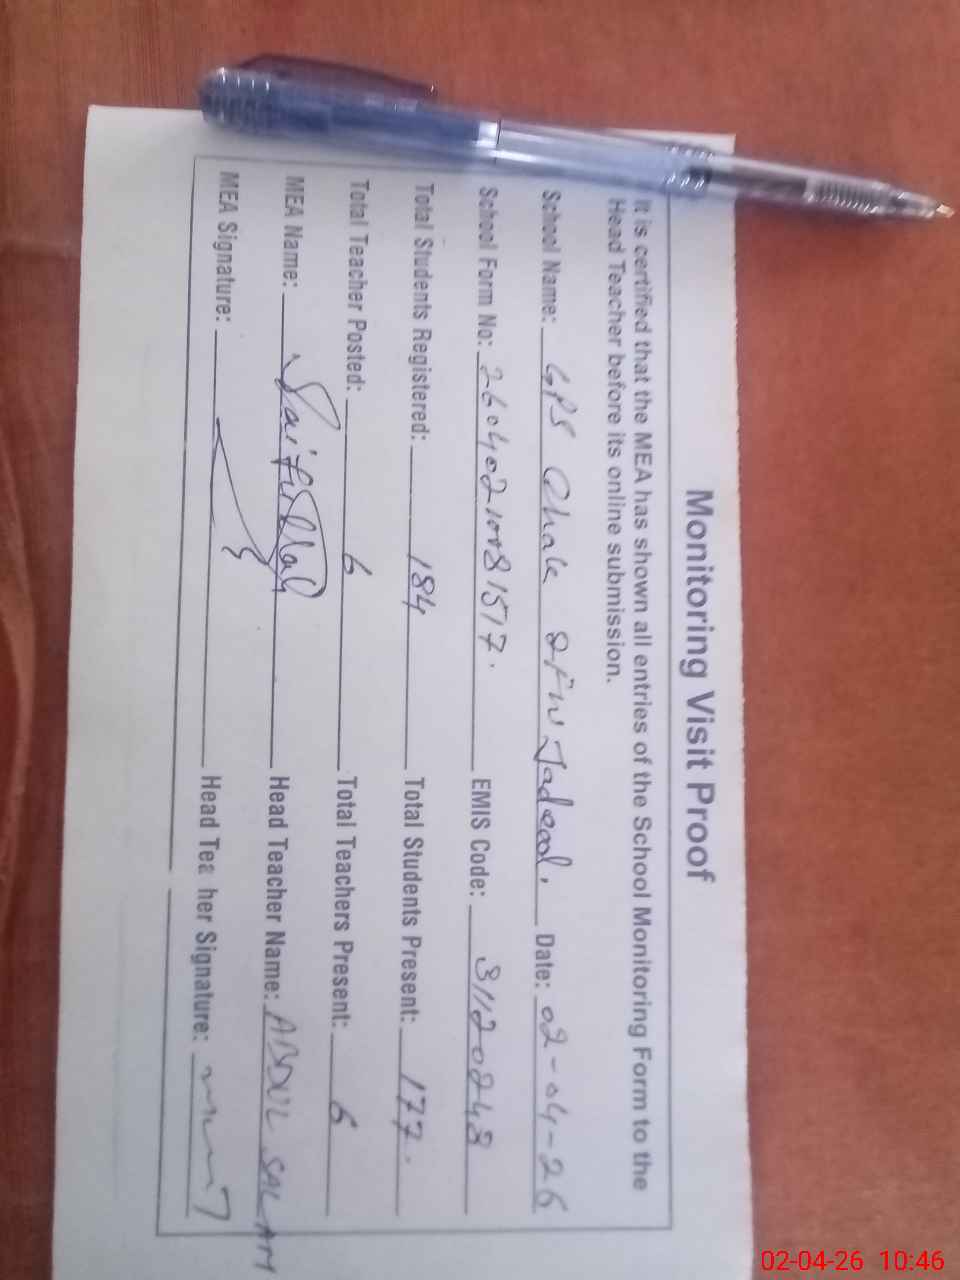 Monitoring Visit Proof
It is certified that the MEA has shown all entries of the School Monitoring Form to the
Head Teacher before its online submission.
School Name: GPS Chak Jadeed. Date: 02-04-26
School Form No: 26040210081577. EMIS Code: 31120248
Total Students Registered: 184 Total Students Present: 177.
Total Teacher Posted: 6 Total Teachers Present: 6
MEA Name: Saifullah Head Teacher Name: ABDUL SALAM
MEA Signature: Head Teacher Signature:
02-04-26 10:46